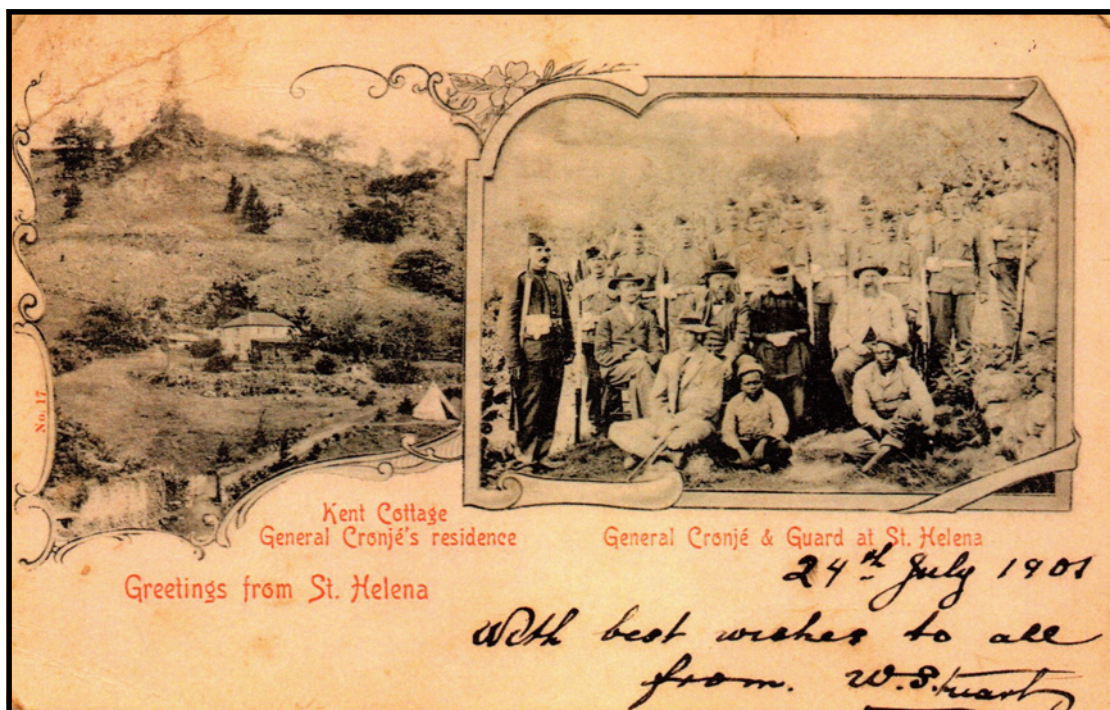 No. 17
Kent Cottage
General Cronjé's residence
General Cronjé & Guard at St. Helena
Greetings from St. Helena
24th July 1901
With best wishes to all
from. W. Stuart